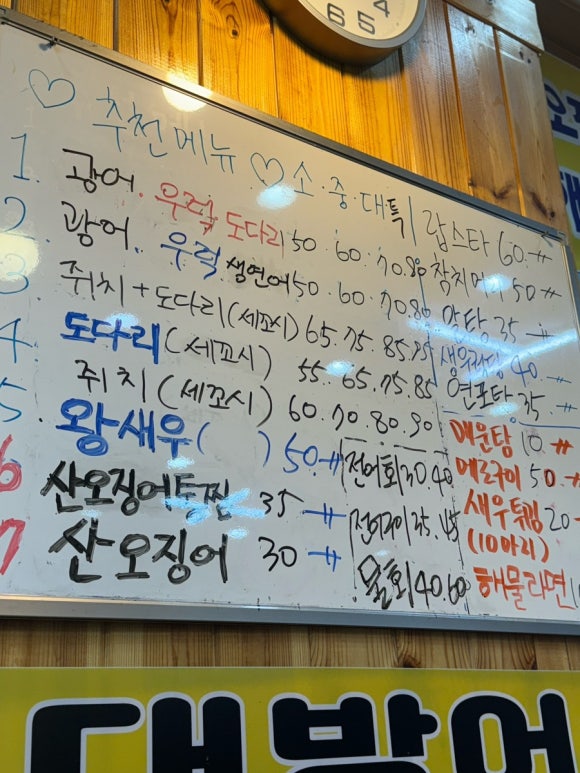 6 5 4
♡ 추천메뉴 ♡ 소·중·대 특
1. 광어. 우럭 도다리 50 60 70.80
2. 광어.. 우럭 생연어 50.60.70.80
3 쥐치+도다리(세꼬시) 65.75.85.95
4. 도다리(세꼬시) 55..65.75.85
5. 쥐치(세꼬시) 60.70.80.90
왕새우( ) 50
6 산오징어통찜 35
7 산오징어 30
랍스타 60.
참치머리 50
알탕 35
40
연포탕 35
전어회 30 40
전어구이 35.45
물회 40.60
매운탕 10.
메로구이 50.
새우튀김 20
(10마리)
해물라면
대방어